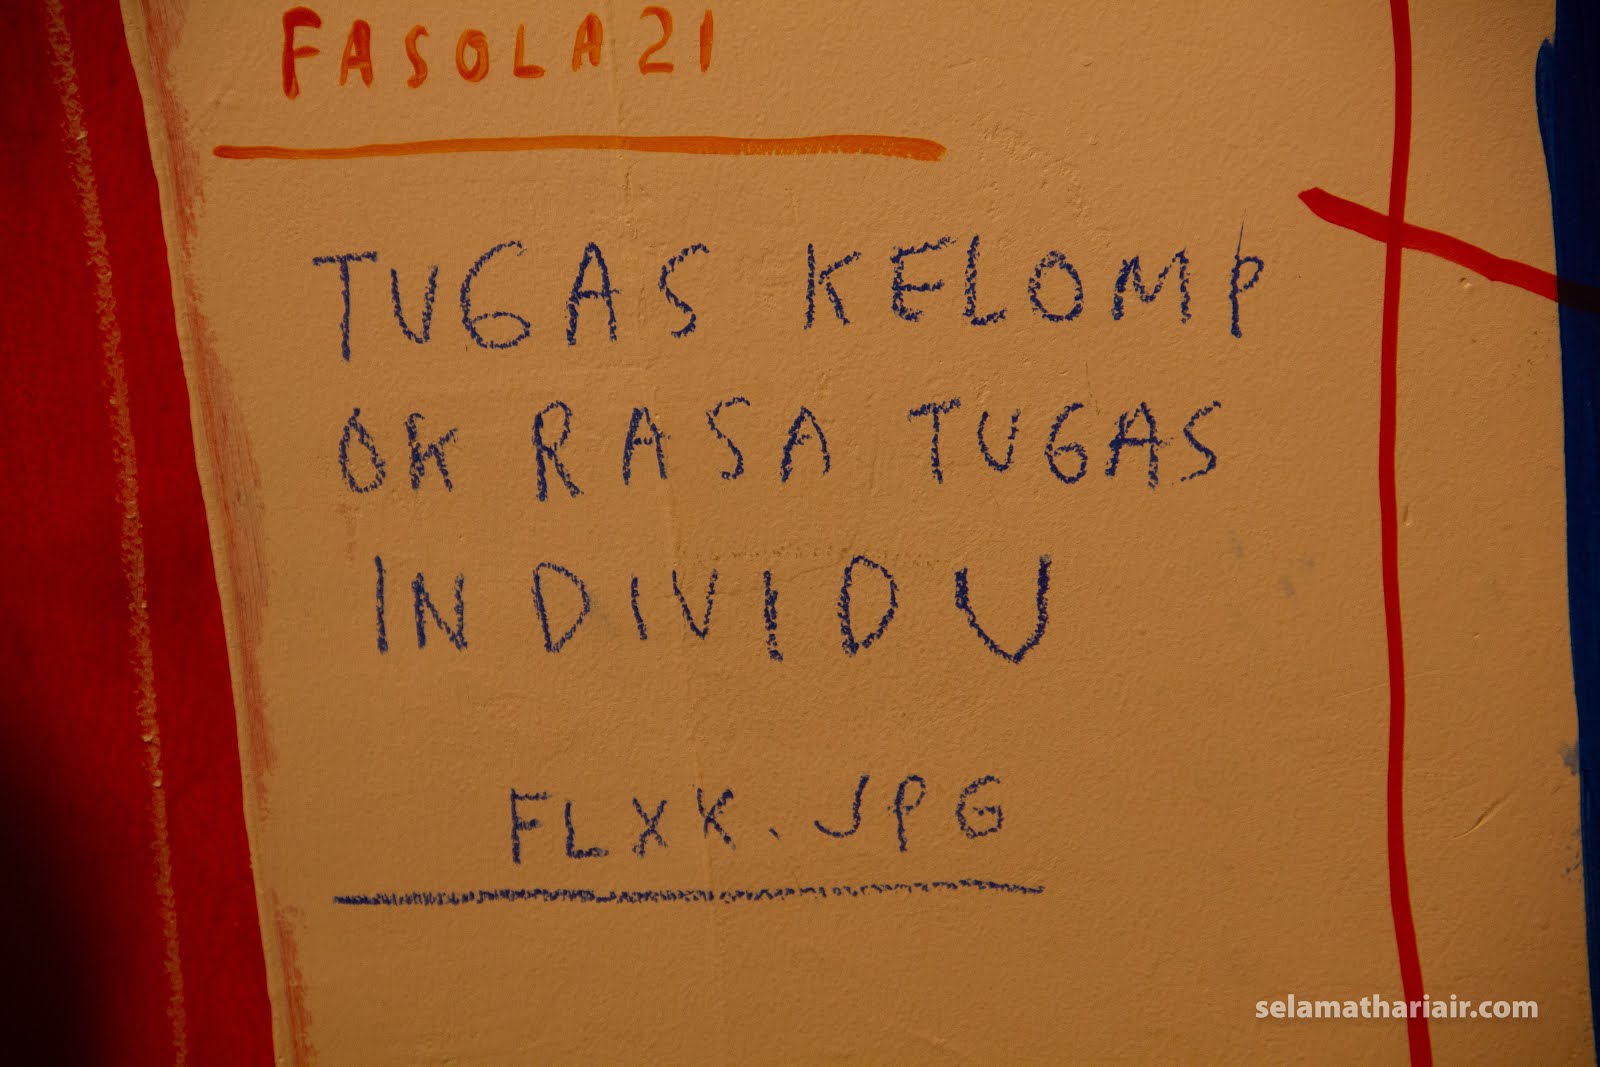 FASOLA21
TUGAS KELOMP
OK RASA TUGAS
INDIVIDU
FLXK.JPG
selamathariair.com